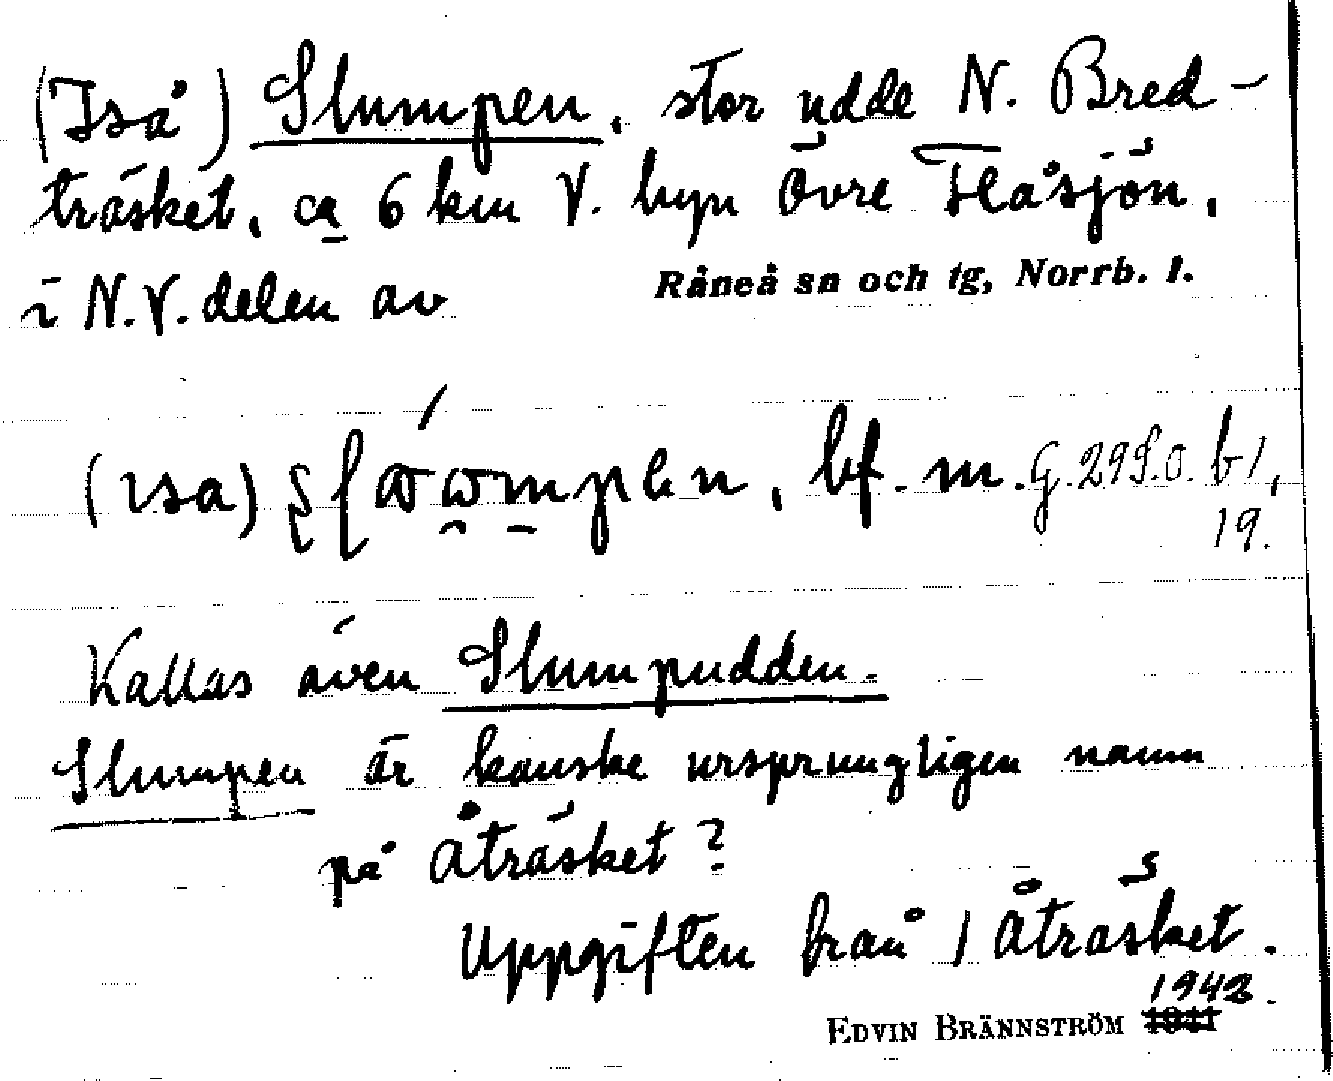 (Iså) Slumpen, stor udde N. Bred-
träsket, ca 6 km V. byn Övre Flåsjön,
i N.V. delen av Råneå sn och tg, Norrb. l.
(ısa) bf. m. G. 299.0. b1,
19.
Kallas även Slumpudden.
Slumpen är kanske ursprungligen namn
på Åträsket?
Uppgiften från 1 Åträsket.
1942.
EDVIN BRÄNNSTRÖM 1941